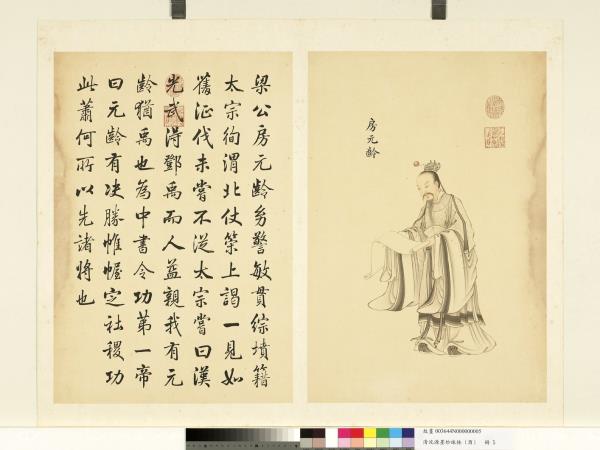 房元齡
梁公房元齡幼警敏貫綜墳籍
太宗徇渭北仗策上謁一見如
舊征伐未嘗不從太宗嘗曰漢
光武得鄧禹而人益親我有元
齡猶禹也為中書令功第一帝
曰元齡有决勝帷幄定社稷功
此蕭何所以先諸將也
故畫003644N000000005